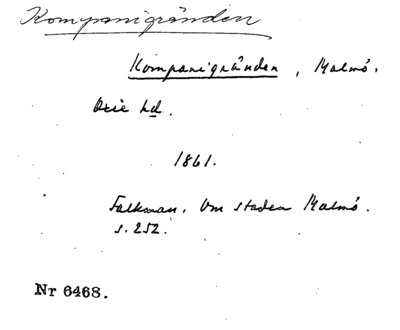 Kompanigränden
Kompanigränden, Malmö.
Oxie hd.
1861.
Falkman. Om staden Malmö.
s. 252.
Nr 6468.